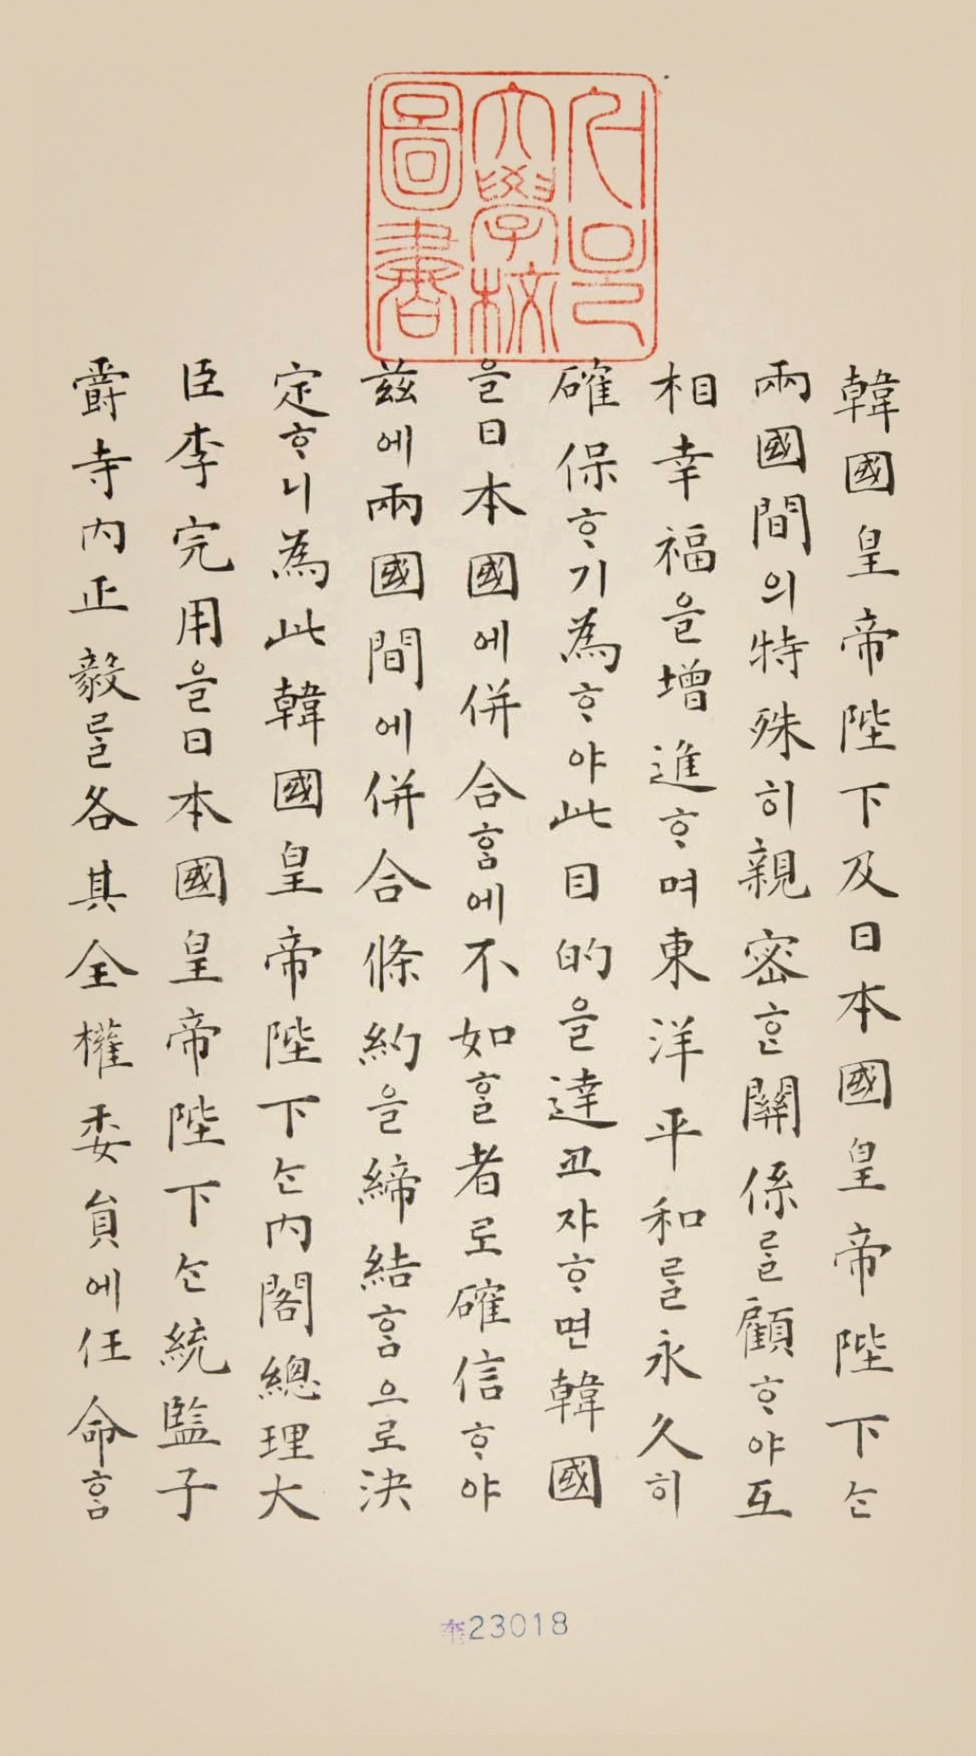 서울
大學校
圖書
韓國皇帝陛下及日本國皇帝陛下는
兩國間의特殊히親密ᄒᆞᆫ關係를顧ᄒᆞ야互
相幸福을增進ᄒᆞ며東洋平和를永久히
確保ᄒᆞ기為ᄒᆞ야此目的을達코쟈ᄒᆞ면韓國
을日本國에併合ᄒᆞᆷ에不如ᄒᆞᆯ者로確信ᄒᆞ야
玆에兩國間에併合條約을締結ᄒᆞᆷ으로決
定ᄒᆞ니為此韓國皇帝陛下는內閣總理大
臣李完用을日本國皇帝陛下는統監子
爵寺內正毅를各其全權委員에任命ᄒᆞᆷ
奎23018